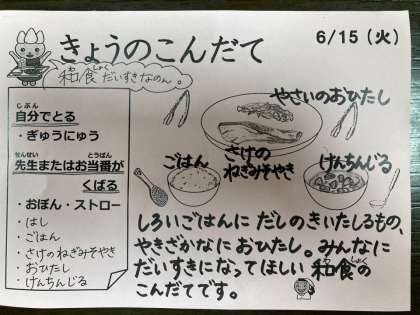 きょうのこんだて
6/15(火)
和食だいすきなのん。
しょく
じぶん
自分でとる
・ぎゅうにゅう
せんせい とうばん
先生またはお当番が
くばる
・おぼん・ストロー
・はし
・ごはん
・さけのねぎみそやき
・おひたし
・けんちんじる
やさいのおひたし
さけの
ねぎみそやき
ごはん
けんちんじる
しろいごはんに だしのきいたしるもの、
やきざかなに おひたし。みんなに
だいすきになってほしい 和食の
わ しょく
こんだてです。